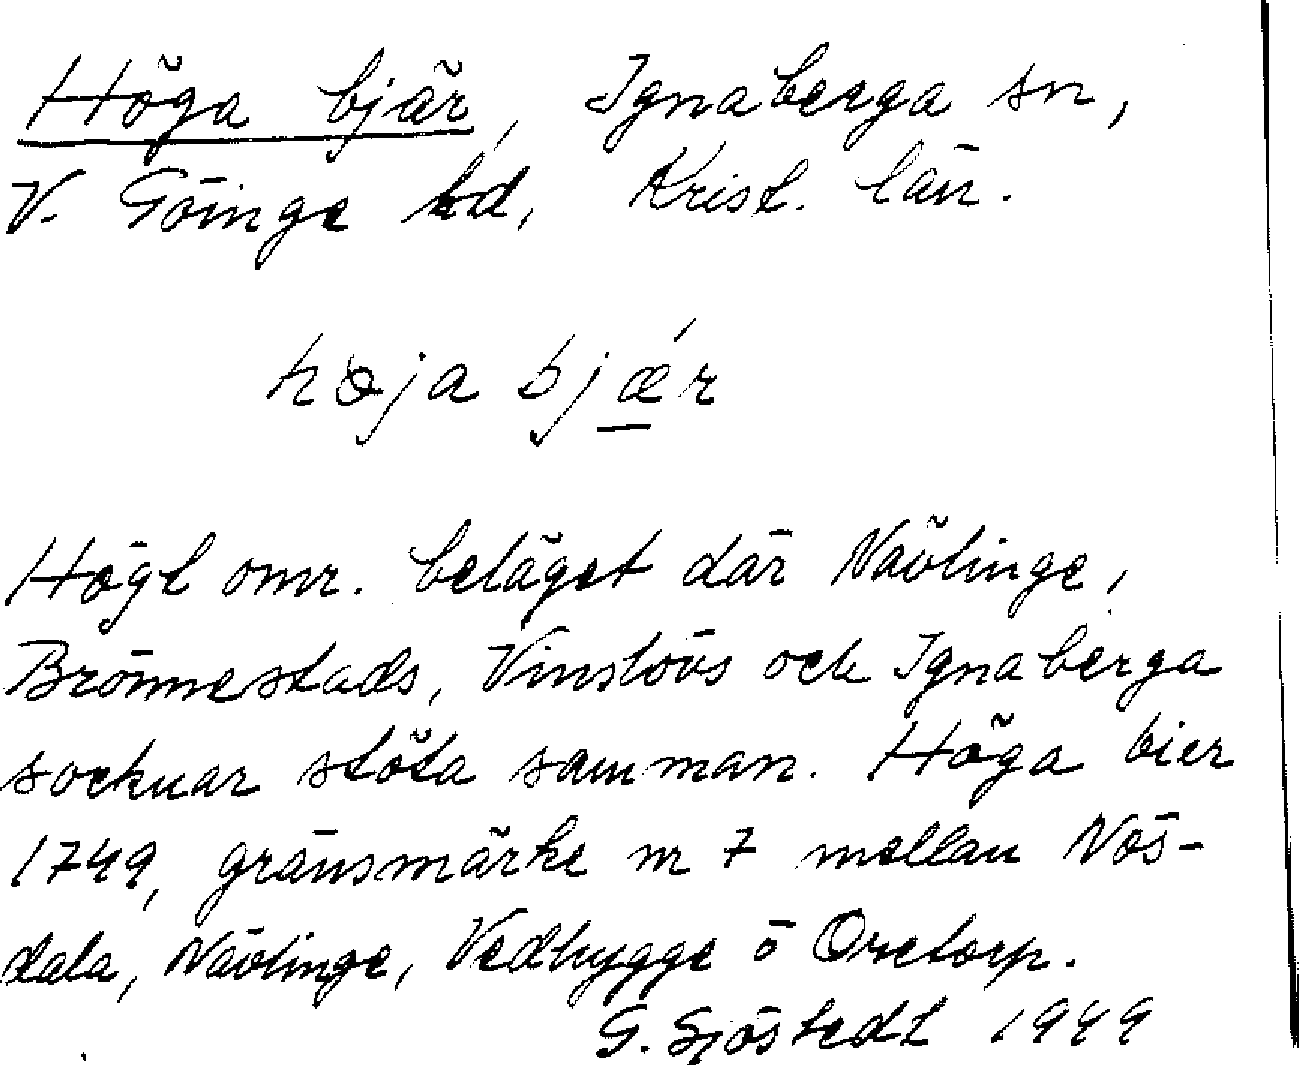 Höga bjär, Ignaberga sn,
V. Göinge hd, Krist. län.
høja bjǽr
Högl omr. beläget där Nävlinge,
Brönnestads, Vinslövs och Ignaberga
socknar stöta samman. Höga bier
1749, gränsmärke nr 7 mellan Nös-
dala, Nävlinge, Vedhygge o Oretorp.
G. Sjöstedt 1949